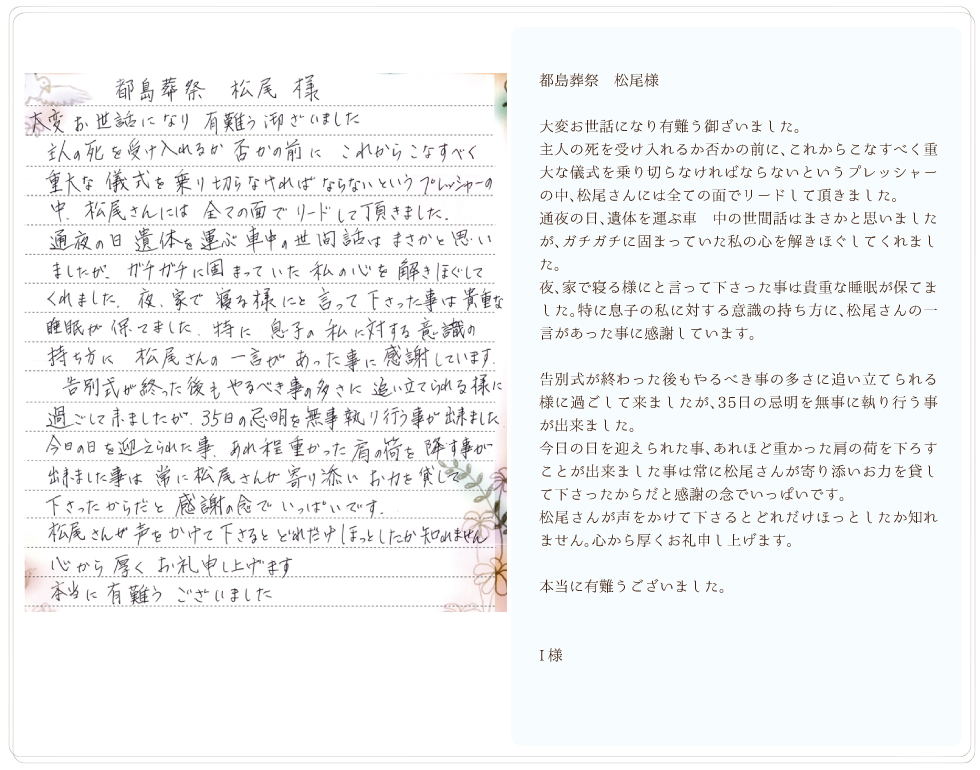 都島葬祭　松尾 様
大変お世話になり 有難う御ざいました
主人の死を受け入れるか否かの前に これからこなすべく
重大な儀式を乗り切らなければならないというプレッシャーの
中、松尾さんには 全ての面でリードして頂きました。
通夜の日 遺体を運ぶ車中の世間話はまさかと思い
ましたが、ガチガチに固まっていた私の心を解きほぐして
くれました。夜、家で寝る様にと言って下さった事は貴重な
睡眠が保てました。特に 息子の私に対する意識の
持ち方に 松尾さんの一言があった事に感謝しています。
告別式が終った後もやるべき事の多さに追い立てられる様に
過ごして来ましたが、35日の忌明を無事執り行う事が出来ました
今日の日を迎えられた事、あれ程重かった肩の荷を降す事が
出来ました事は 常に松尾さんが寄り添い お力を貸して
下さったからだと感謝の念でいっぱいです。
松尾さんが声をかけて下さるとどれだけほっとしたか知れません
心から厚くお礼申し上げます
本当に有難うございました
都島葬祭　松尾様
大変お世話になり有難う御ざいました。
主人の死を受け入れるか否かの前に、これからこなすべく重
大な儀式を乗り切らなければならないというプレッシャー
の中、松尾さんには全ての面でリードして頂きました。
通夜の日、遺体を運ぶ車　中の世間話はまさかと思いました
が、ガチガチに固まっていた私の心を解きほぐしてくれまし
た。
夜、家で寝る様にと言って下さった事は貴重な睡眠が保てま
した。特に息子の私に対する意識の持ち方に、松尾さんの一
言があった事に感謝しています。
告別式が終わった後もやるべき事の多さに追い立てられる
様に過ごして来ましたが、35日の忌明を無事に執り行う事
が出来ました。
今日の日を迎えられた事、あれほど重かった肩の荷を下ろす
ことが出来ました事は常に松尾さんが寄り添いお力を貸し
て下さったからだと感謝の念でいっぱいです。
松尾さんが声をかけて下さるとどれだけほっとしたか知れ
ません。心から厚くお礼申し上げます。
本当に有難うございました。
I 様